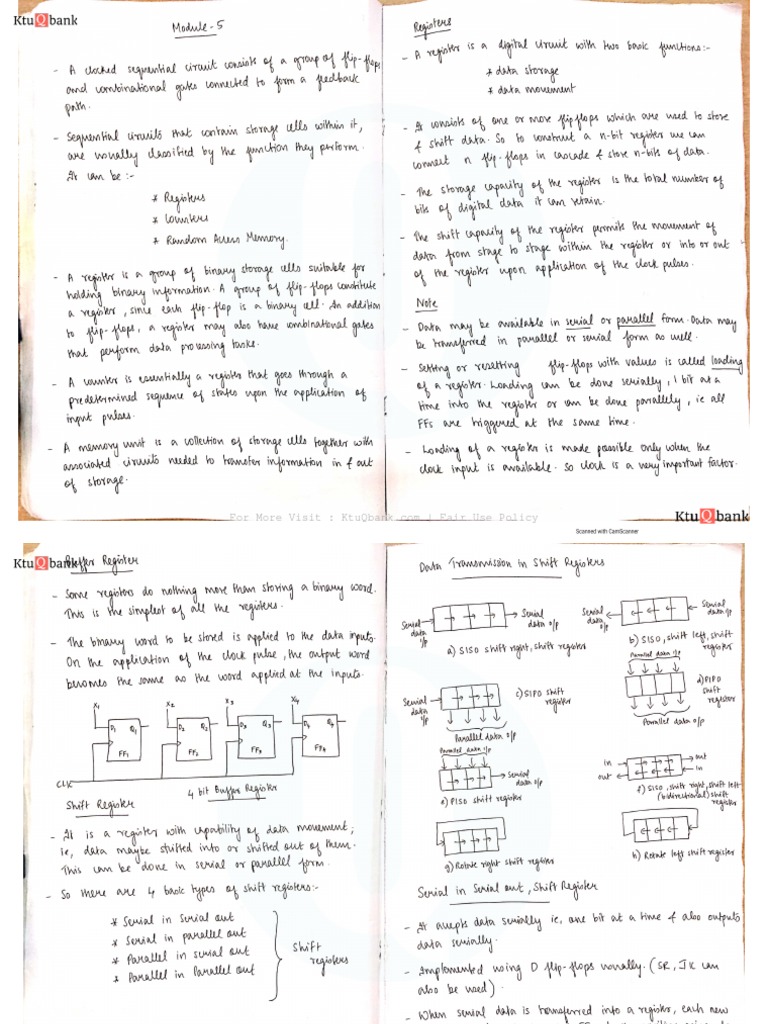 KtuQbank
Module - 5
- A clocked sequential circuit consists of a group of flip-flops
and combinational gates connected to form a feedback
path.
- Sequential circuits that contain storage cells within it,
are usually classified by the function they perform.
It can be :-
* Registers
* Counters
* Random Access Memory.
- A register is a group of binary storage cells suitable for
holding binary information. A group of flip-flops constitute
a register, since each flip-flop is a binary cell. In addition
to flip-flops, a register may also have combinational gates
that perform data processing tasks.
- A counter is essentially a register that goes through a
predetermined sequence of states upon the application of
input pulses.
- A memory unit is a collection of storage cells together with
associated circuits needed to transfer information in & out
of storage.
Registers
- A register is a digital circuit with two basic functions:-
* data storage
* data movement
- It consists of one or more flipflops which are used to store
& shift data. So to construct a n-bit register we can
connect n flip-flops in cascade & store n-bits of data.
- The storage capacity of the register is the total number of
bits of digital data it can retain.
- The shift capacity of the register permits the movement of
data from stage to stage within the register or into or out
of the register upon application of the clock pulses.
Note
- Data may be available in serial or parallel form. Data may
be transferred in parallel or serial form as well.
- Setting or resetting flip-flops with values is called loading
of a register. Loading can be done serially, 1 bit at a
time into the register or can be done parallely, ie all
FFs are triggered at the same time.
- Loading of a register is made possible only when the
clock input is available. So clock is a very important factor.
For More Visit : KtuQbank.com | Fair Use Policy
KtuQbank
Scanned with CamScanner
KtuQbank
Buffer Register
- Some registors do nothing more than storing a binary word.
This is the simplest of all the registers.
- The binary word to be stored is applied to the data inputs.
On the application of the clock pulse, the output word
becomes the same as the word applied at the inputs.
X1 X2 X3 X4
D1 Q1 D2 Q2 D3 Q3 D4 Q4
FF1 FF2 FF3 FF4
CLK
4 bit Buffer Register
Shift Register
- It is a register with capability of data movement;
ie, data maybe shifted into or shifted out of them.
This can be done in serial or parallel form.
- So there are 4 basic types of shift registers:-
* Serial in serial out
* Serial in parallel out
* Parallel in serial out
* Parallel in Parallel out
Shift
registers
Data Transmission in Shift Registers
Serial
data
i/p
Serial
data o/p
a) SISO shift right, shift register
Serial
data o/p
Serial
data i/p
b) SISO, shift left, shift
register
Serial
data
i/p
c) SIPO shift
register
Parallel data o/p
Parallel data i/p
d) PIPO
shift
register
Parallel data o/p
Parallel data i/p
Serial
data o/p
e) PISO shift register
in
out
out
in
f) SISO, shift right, shift left
(bidirectional) shift
register
g) Rotate right shift register
h) Rotate left shift register
Serial in Serial out, Shift Register
- It accepts data serially ie, one bit at a time & also outputs
data serially.
- Implemented using D flip-flops usually. (SR, JK can
also be used).
- When serial data is transferred into a register, each new